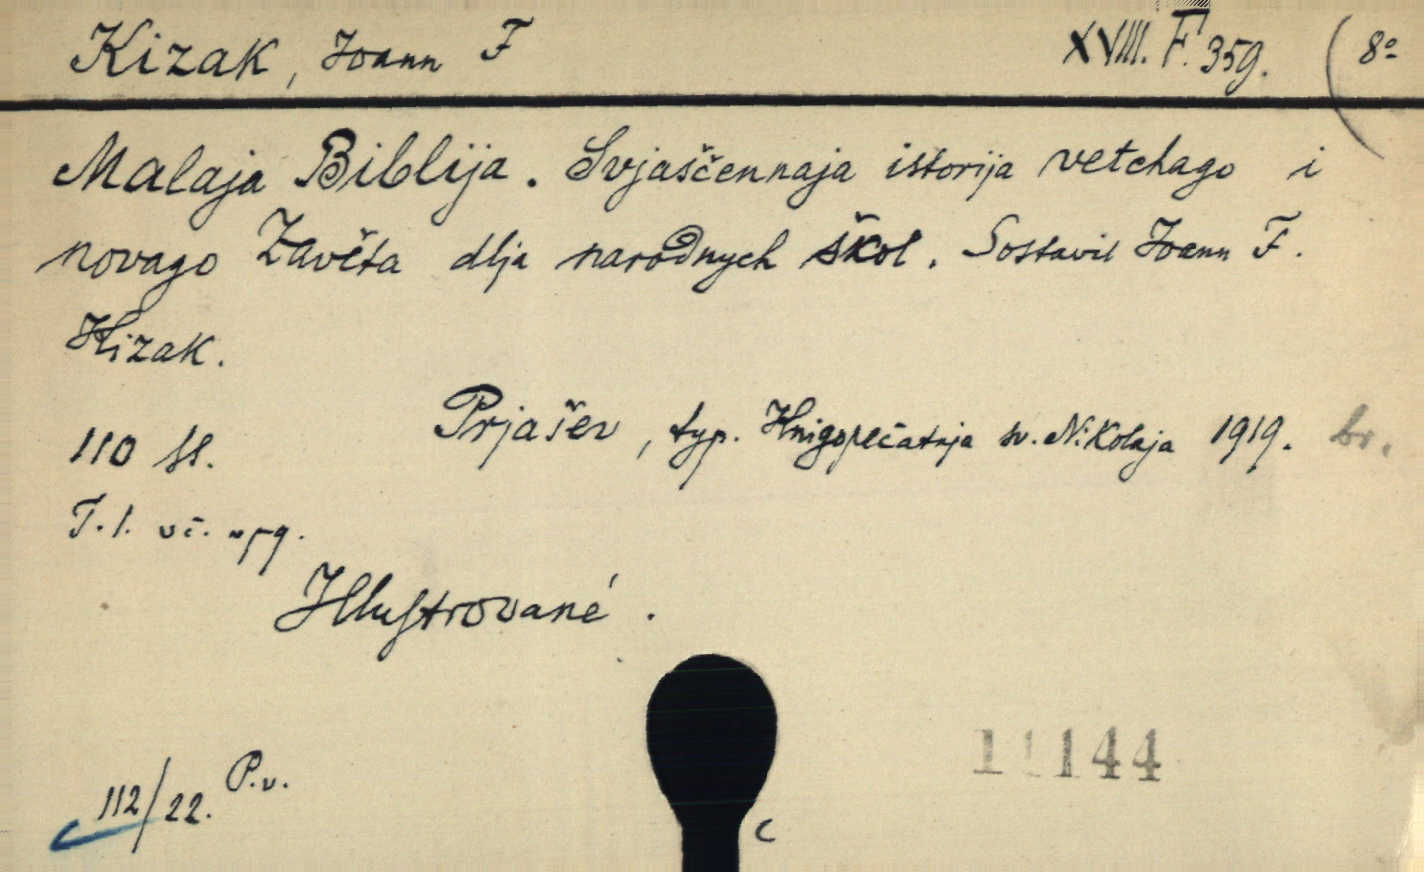 Kizak, Joann F XVIII. F. 359. (8º
Malaja Biblija. Svjaščennaja istorija vetchago i
novago Zavěta dlja narodnych škol. Sostavil Joann F.
Kizak.
Prjašev, typ. Knigopečatnja sv. Nikolaja 1919. br.
110 st.
T. l. vč.
Illustrované.
112/22. P.v.
144
c